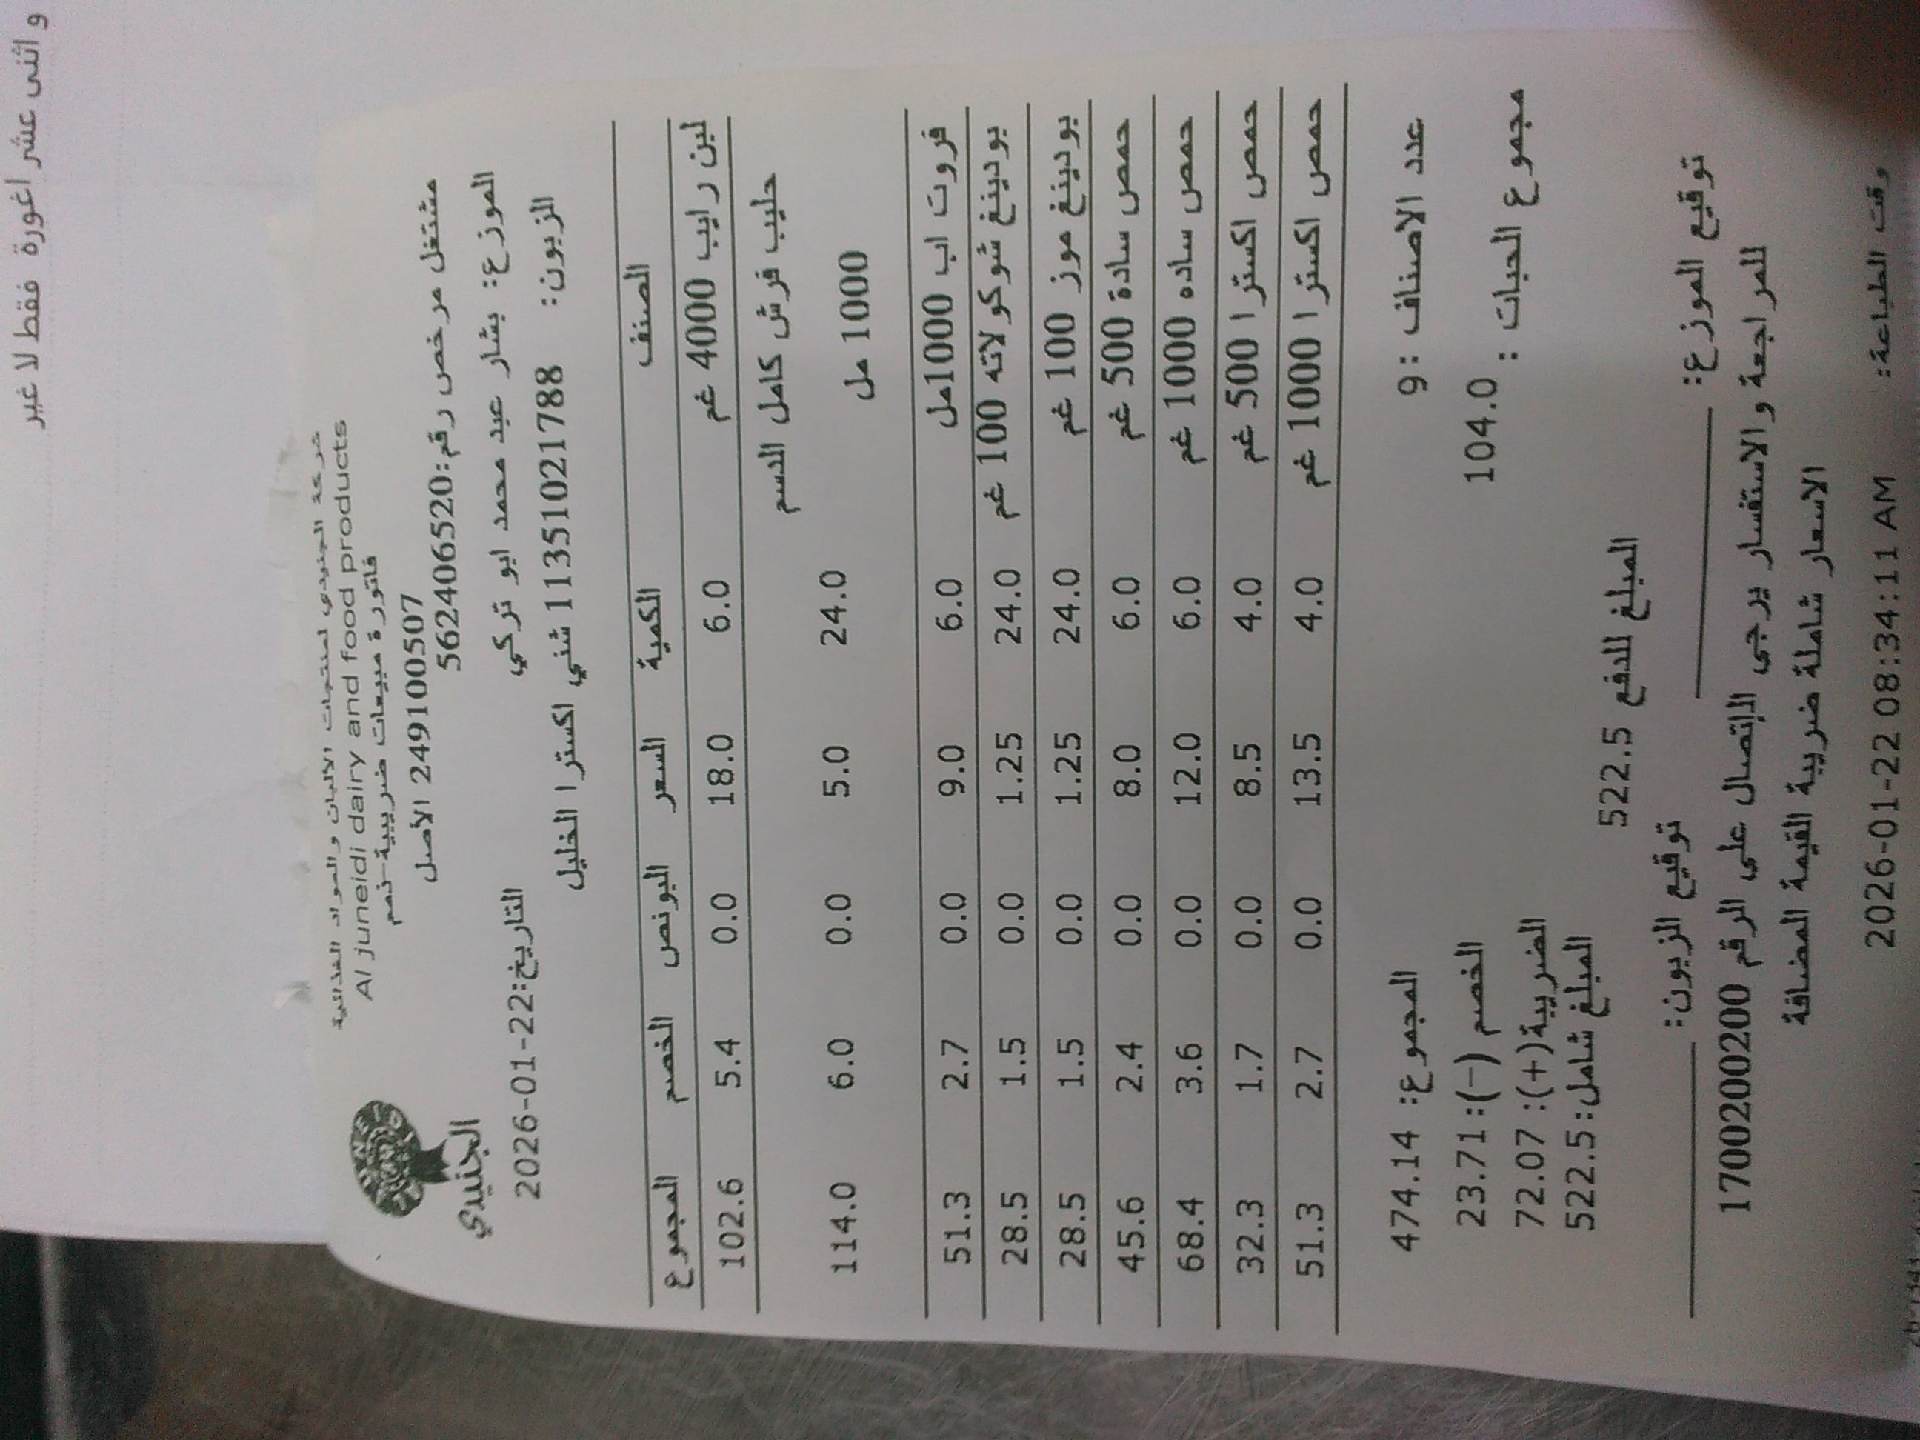 و اثنى عشر اغورة فقط لا غير
شركة الجنيدي لمنتجات الالبان والمواد الغذائية
Al juneidi dairy and food products
فاتورة مبيعات ضريبية-ذمم
الجنيدي
249100507 الأصل
مشتغل مرخص رقم:562406520
الموزع: بشار عبد محمد ابو تركي
التاريخ:22-01-2026
الزبون: 11351021788 شني اكسترا الخليل
الصنف الكمية السعر البونص الخصم المجموع
لبن رايب 4000 غم 6.0 18.0 0.0 5.4 102.6
حليب فرش كامل الدسم
1000 مل 24.0 5.0 0.0 6.0 114.0
فروت اب 1000مل 6.0 9.0 0.0 2.7 51.3
بودينغ شوكولاته 100 غم 24.0 1.25 0.0 1.5 28.5
بودينغ موز 100 غم 24.0 1.25 0.0 1.5 28.5
حمص سادة 500 غم 6.0 8.0 0.0 2.4 45.6
حمص ساده 1000 غم 6.0 12.0 0.0 3.6 68.4
حمص اكسترا 500 غم 4.0 8.5 0.0 1.7 32.3
حمص اكسترا 1000 غم 4.0 13.5 0.0 2.7 51.3
عدد الاصناف :9 المجموع: 474.14
مجموع الحبات : 104.0 الخصم (-): 23.71
الضريبة(+): 72.07
المبلغ شامل: 522.5
المبلغ للدفع 522.5
توقيع الموزع: توقيع الزبون:
للمراجعة والاستفسار يرجى الاتصال على الرقم 1700200200
الاسعار شاملة ضريبة القيمة المضافة
وقت الطباعة: 2026-01-22 08:34:11 AM